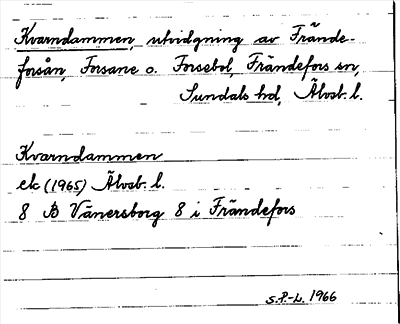 Kvarndammen, utvidgning av Frände-
forsån, Forsane o. Forsebol, Frändefors sn,
Sundals hd, Älvsb. l.
Kvarndammen
ek (1965) Älvsb. l.
8 B Vänersborg 8 i Frändefors
S.P-L. 1966